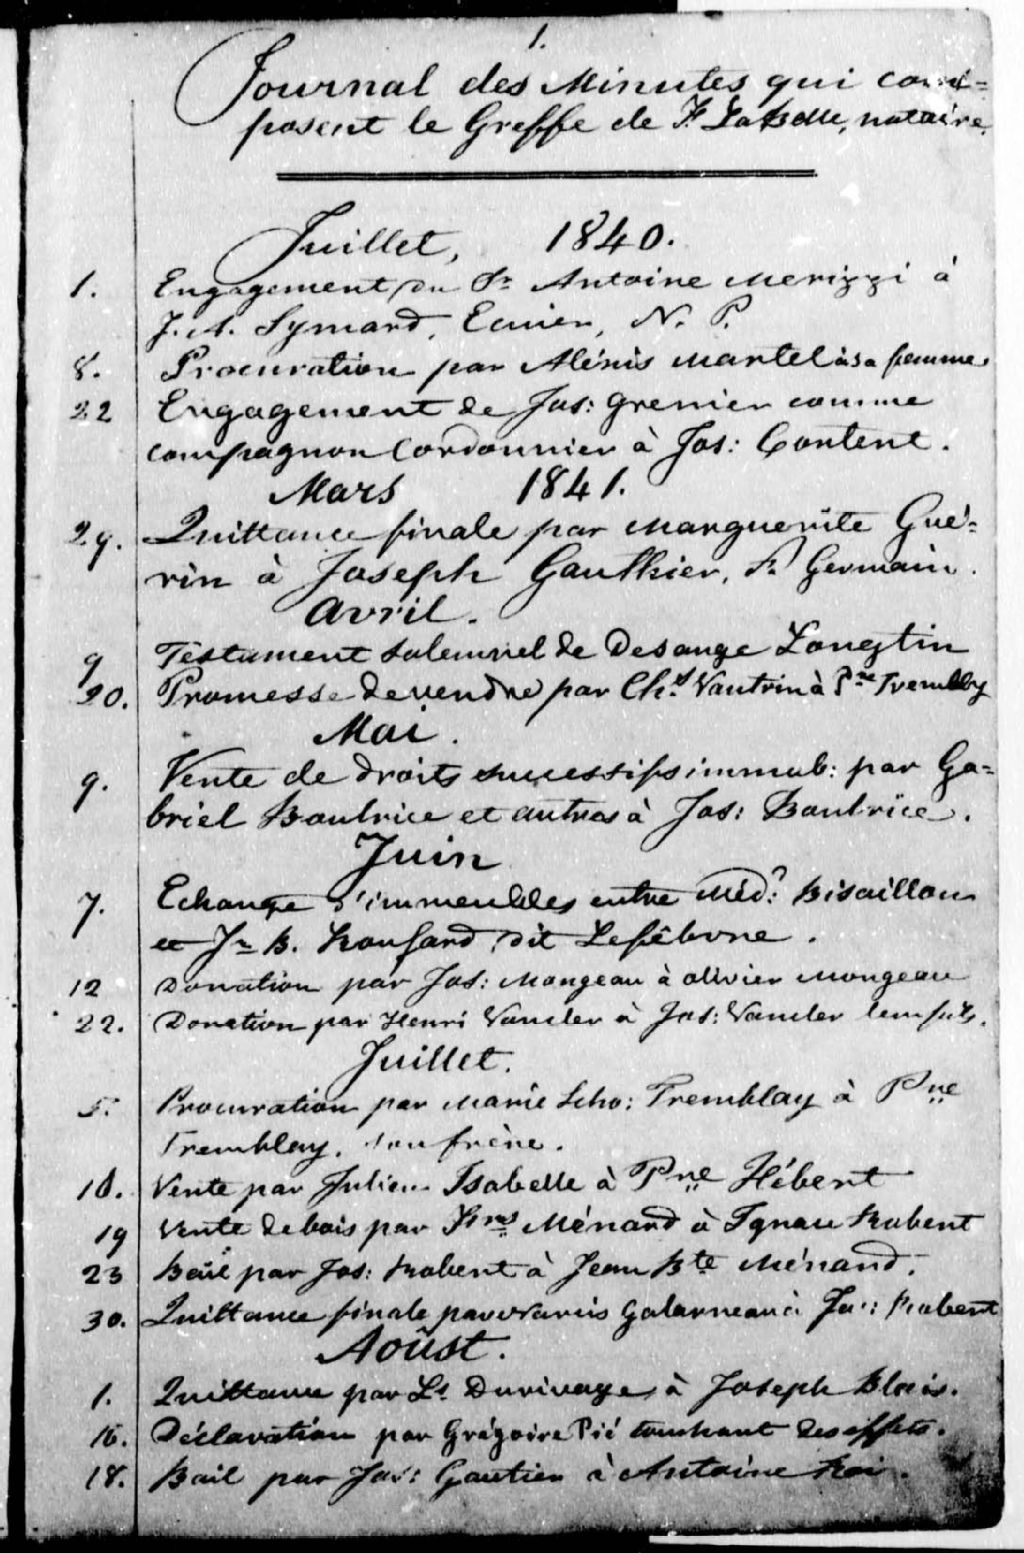 1.
Journal des Minutes qui com=
posent le Greffe de F. LaBelle, notaire.
Juillet, 1840.
1. Engagement du Sr Antoine Merizzi à
J. A. Lymard, Ecuier, N. P.
8. Procuration par Alexis Martel à sa femme.
22 Engagement de Jos: Grenier comme
compagnon Cordonnier à Jos: Content.
Mars 1841.
29. Quittance finale par Marguerite Gué=
rin à Joseph Gauthier, St Germain.
Avril.
9 Testament solemnel de Desange Longtin
20. Promesse de vendre par Chs Vautrin à Pre Tremblay
Mai.
9. Vente de droits successifs immob: par Ga=
briel Boutrice et autres à Jos: Boutrice.
Juin
7. Echange d'immeubles entre Méd: Bisaillon
et Jn B. Ronsard dit Lefêbvre.
12 Donation par Jos: Mongeau à Olivier Mongeau
22. Donation par Henri Vander à Jos: Vander
Juillet.
5. Procuration par Marie Scho: Tremblay à Pre
Tremblay, son frère.
10. Vente par Julien Isabelle à Pre Hébert
19 Vente de bois par Frs Ménard à Ignace Robert
23 Bail par Jos: Robert à Jean Bte Ménard.
30. Quittance finale par Narcis Galarneau à Jos: Robert
Aoûst.
1. Quittance par Ls Durivage à Joseph Blais.
16. Déclaration par Grégoire Pié touchant des effets.
18. Bail par Jos: Gautier à Antoine Roi.